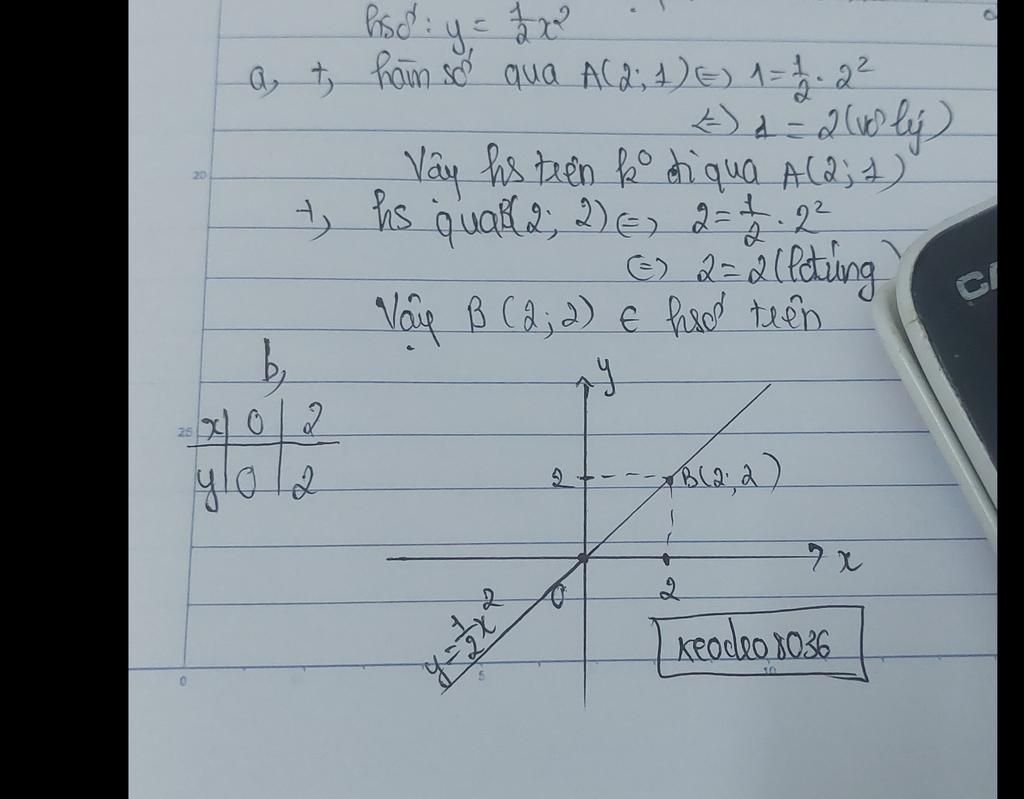 hsố: y = 1/2 x²
a, +, hàm số qua A(2; 1) <=> 1 = 1/2 . 2²
<=> 1 = 2 (vô lý)
Vậy hs trên k° đi qua A(2; 1)
+, hs qua B(2; 2) <=> 2 = 1/2 . 2²
<=> 2 = 2 (lđúng)
Vậy B (2; 2) ∈ hsố trên
b,
x | 0 | 2
y | 0 | 2
y
2
B(2; 2)
x
0
2
y = 1/2 x²
keodeo8036
20
25
0
5
10